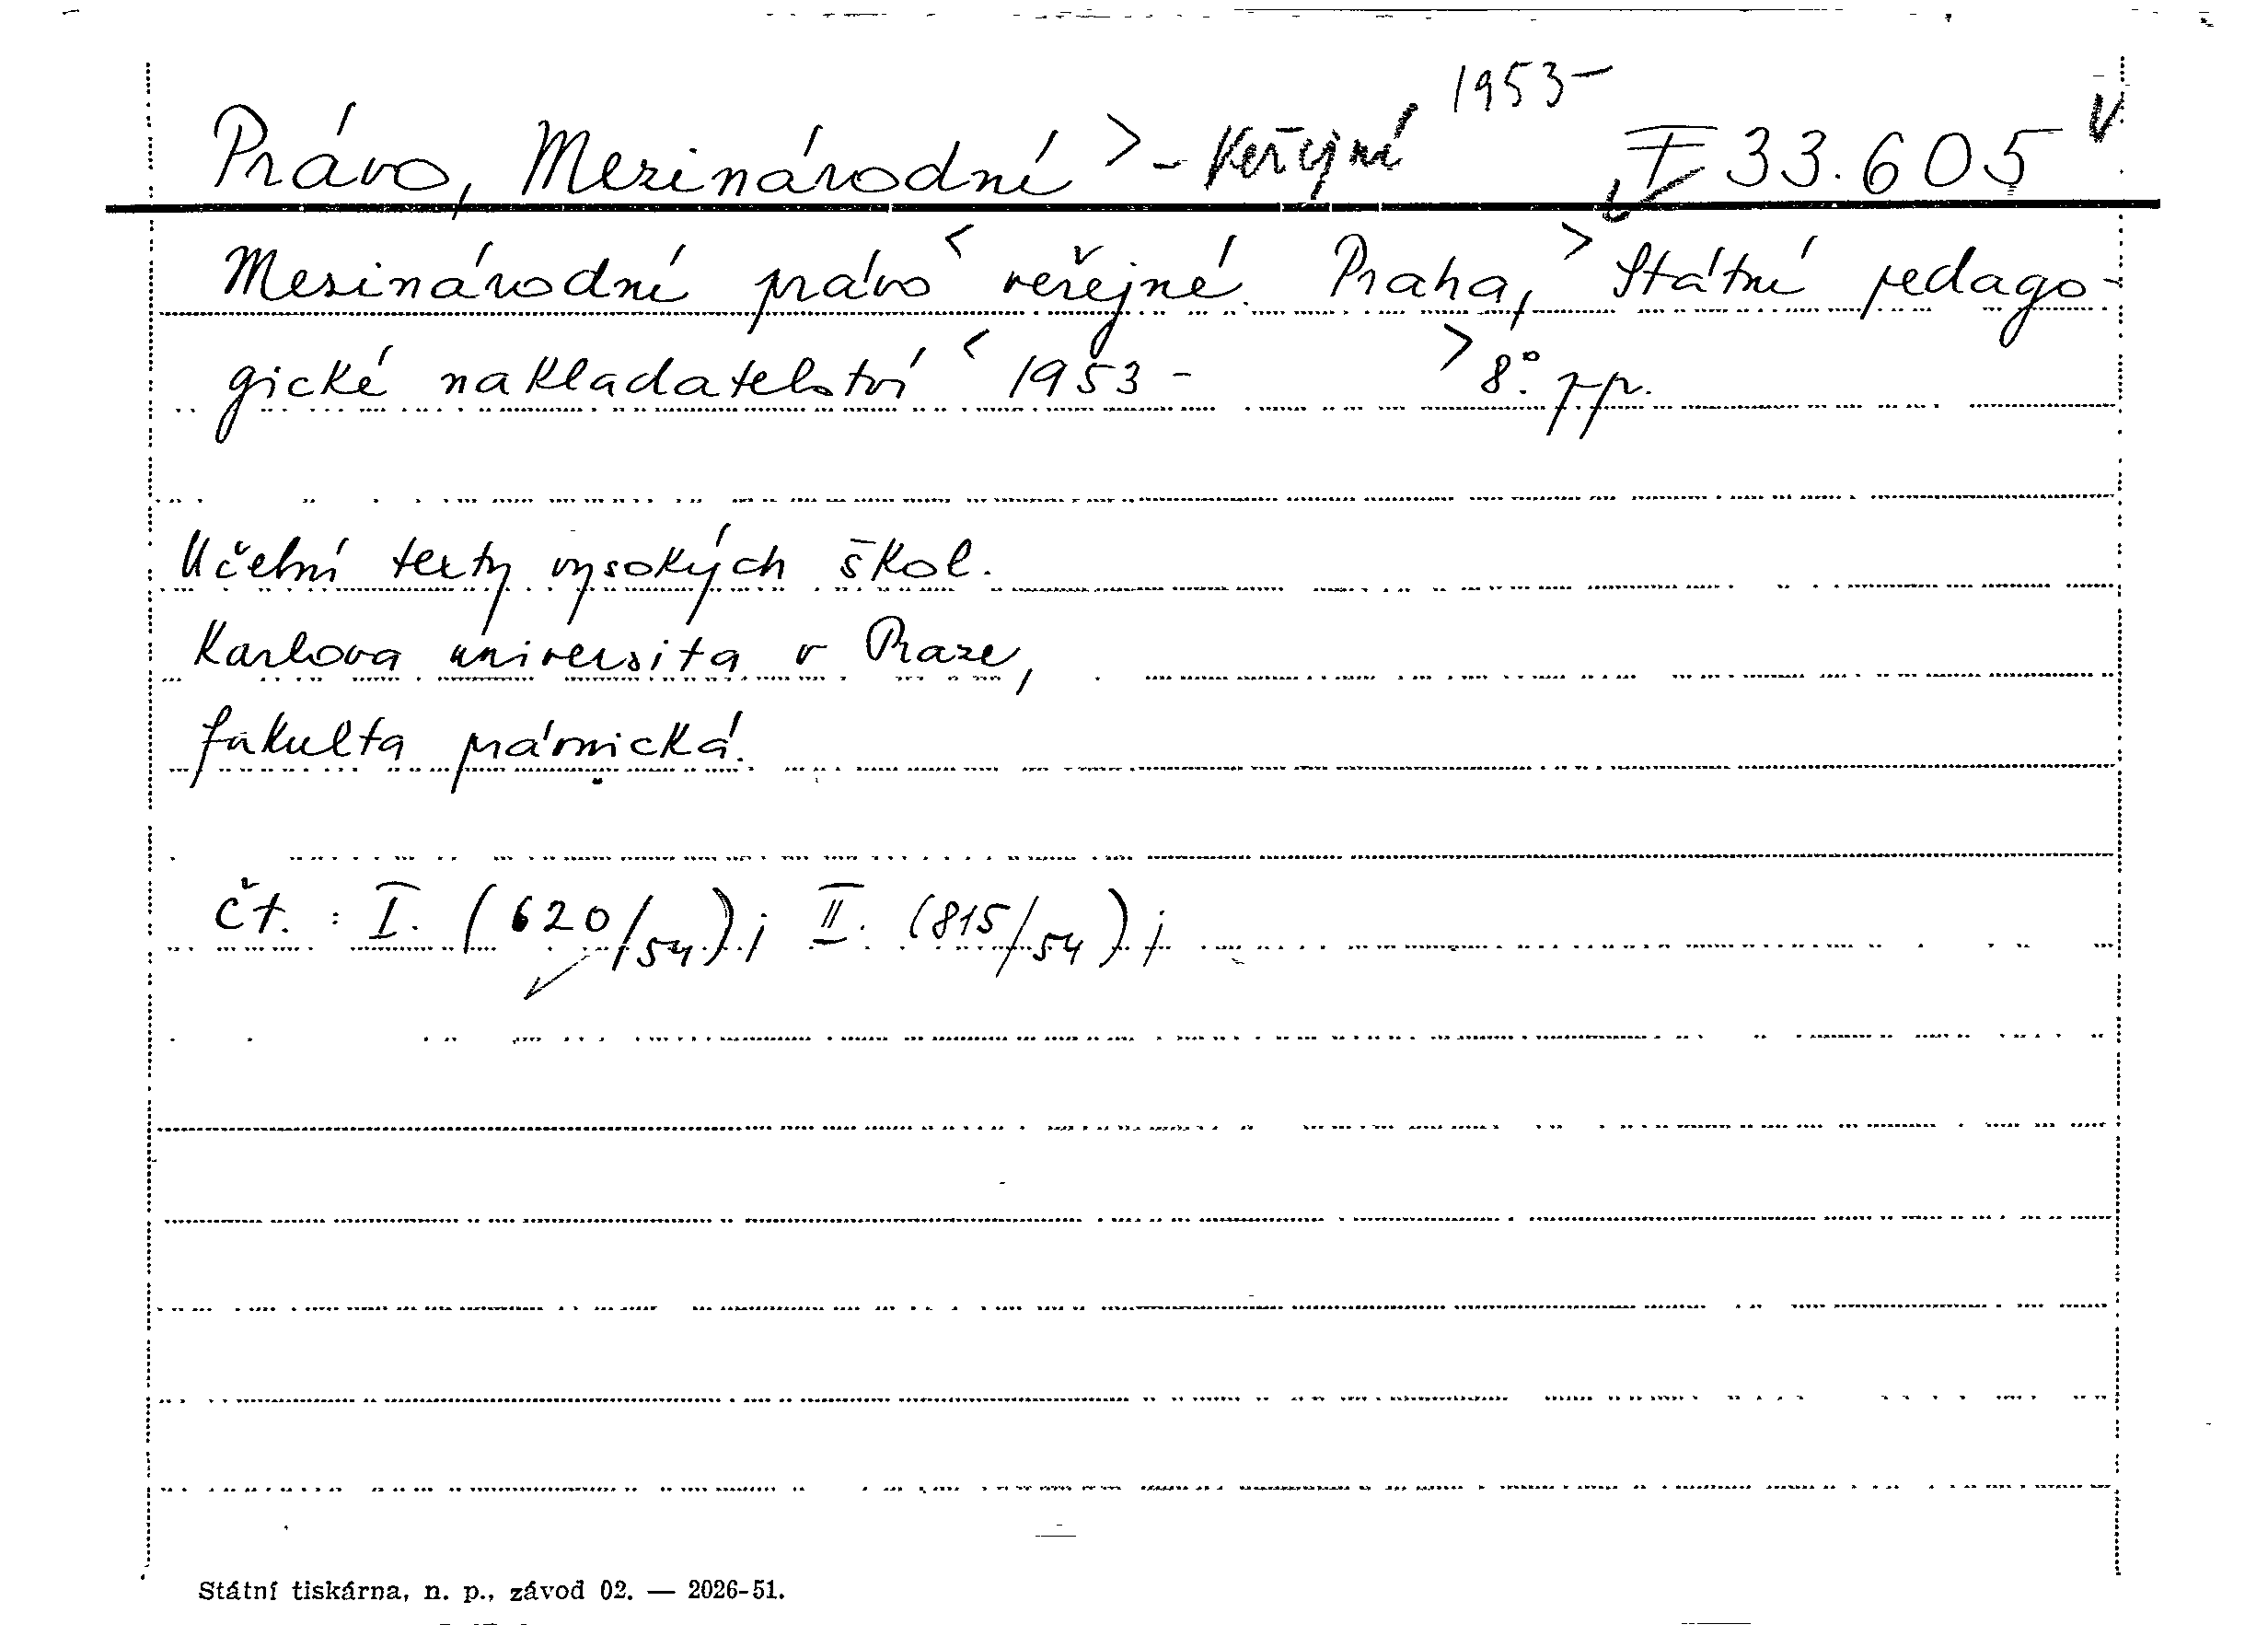 1953-
Právo, Mezinárodní > - veřejné I 33.605 V
Mezinárodní právo < veřejné. Praha, > Státní pedago-
gické nakladatelství < 1953- > 8°. pp.
Učební texty vysokých škol.
Karlova universita v Praze,
fakulta právnická.
čt. : I. (620/54); II. (815/54);
Státní tiskárna, n. p., závod 02. — 2026-51.